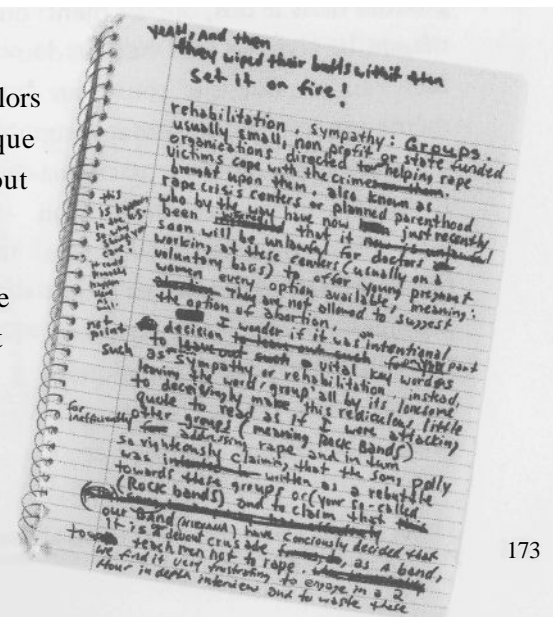 yeah, and then
they wiped their butts with it then
Set it on fire!
rehabilitation, sympathy: Groups.
usually small, non profit or state funded
organizations directed to helping rape
victims cope with the crimes
brought upon them, also known as
rape crisis centers or planned parenthood
who by the way have now just recently
been that it
soon will be unlawful for doctors
working at these centers (usually on a
voluntary basis) to offer young pregnant
women every option available, meaning:
They are not allowed to suggest
the option of abortion.
I wonder if it was an intentional
decision to leave out such for your part
to leave out such a vital key words
such as sympathy or rehabilitation, instead,
leaving the word 'group' all by its lonesome
to deceivingly make this rediculous, little
quote to read as if I were attacking
other groups (meaning Rock Bands)
for inefficiently addressing rape and in turn
so righteously claiming, that the song, polly
was written as a rebuttle
towards these groups or (your so-called
(Rock bands) and to claim that
our Band (NIRVANA) have conciously decided that
it is a devout crusade as a band,
to teach men not to rape.
we find it very frustrating to engage in a 2
Hour in depth interview and to waste these
this
is happening
in the U.S.
you
could
probably
happen
here
as
well.
not
print
lors
que
out
e
t
173